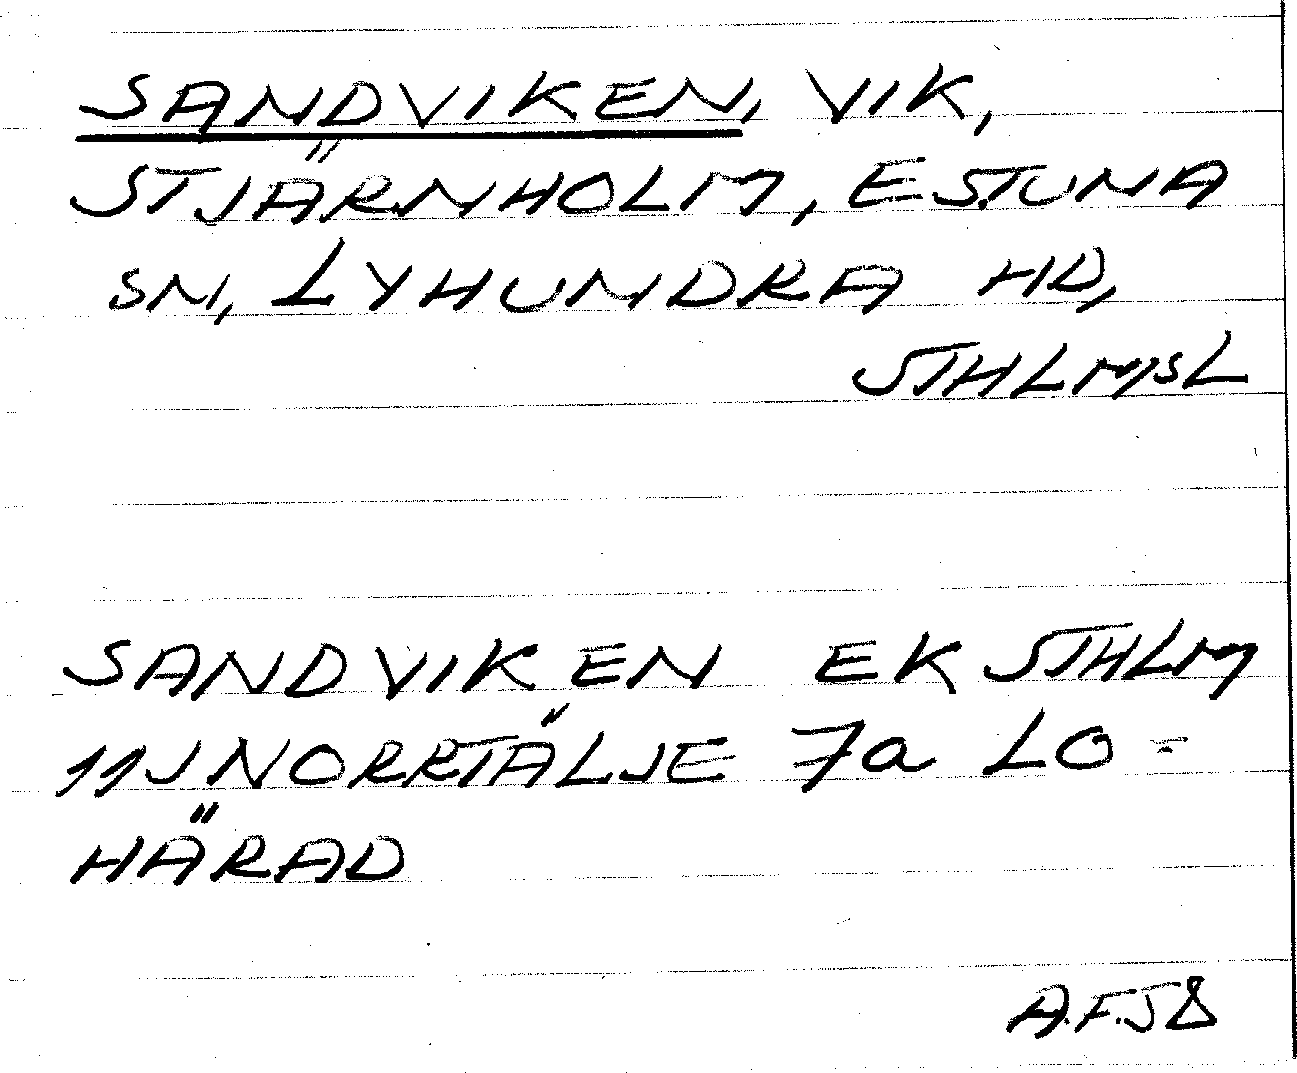 SANDVIKEN, VIK,
STJÄRNHOLM, ESTUNA
SN, LYHUNDRA HD,
STHLMSL
SANDVIKEN EK STHLM
11J NORRTÄLJE 7a LO-
HÄRAD